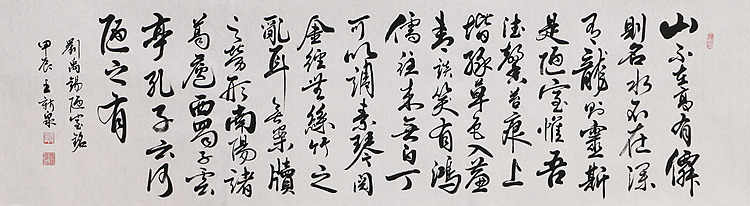 山不在高有僊
則名水不在深
有龍則靈斯
是陋室惟吾
德馨苔痕上
堦綠草色入簾
青談笑有鴻
儒往來無白丁
可以調素琴閱
金經無絲竹之
亂耳無案牘
之勞形南陽諸
葛廬西蜀子雲
亭孔子云何
陋之有
劉禹錫陋室銘
甲辰王新泉